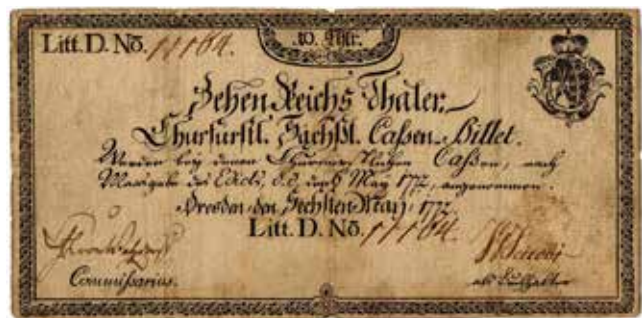 10. Thlr.
Litt. D. No. 11164.
Zehen Reichs Thaler.
Churfürstl. Sächßl. Caßen-Billet.
Werden bey denen Churfürstlichen Caßen, nach
Maasgabe des Edicts, d.d. 6 May 1772, angenommen.
Dresden, den Sechsten May, 1772.
Litt. D. No. 11164.
Commißarius.
als Buchhalter